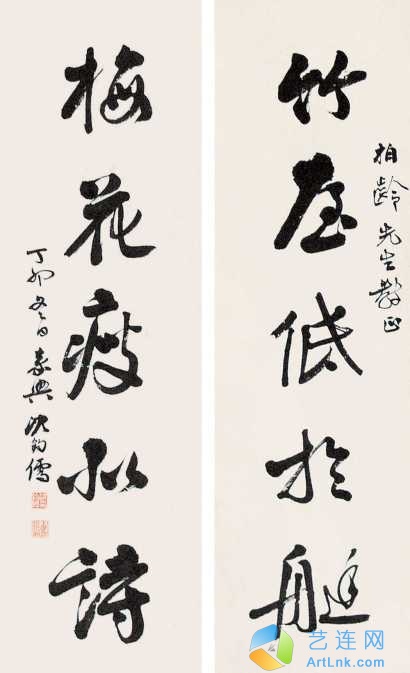 柏齡先生教正
竹屋低於艇
梅花瘦似詩
丁卯冬日嘉興沈鈞儒
艺连网
ArtLnk.com